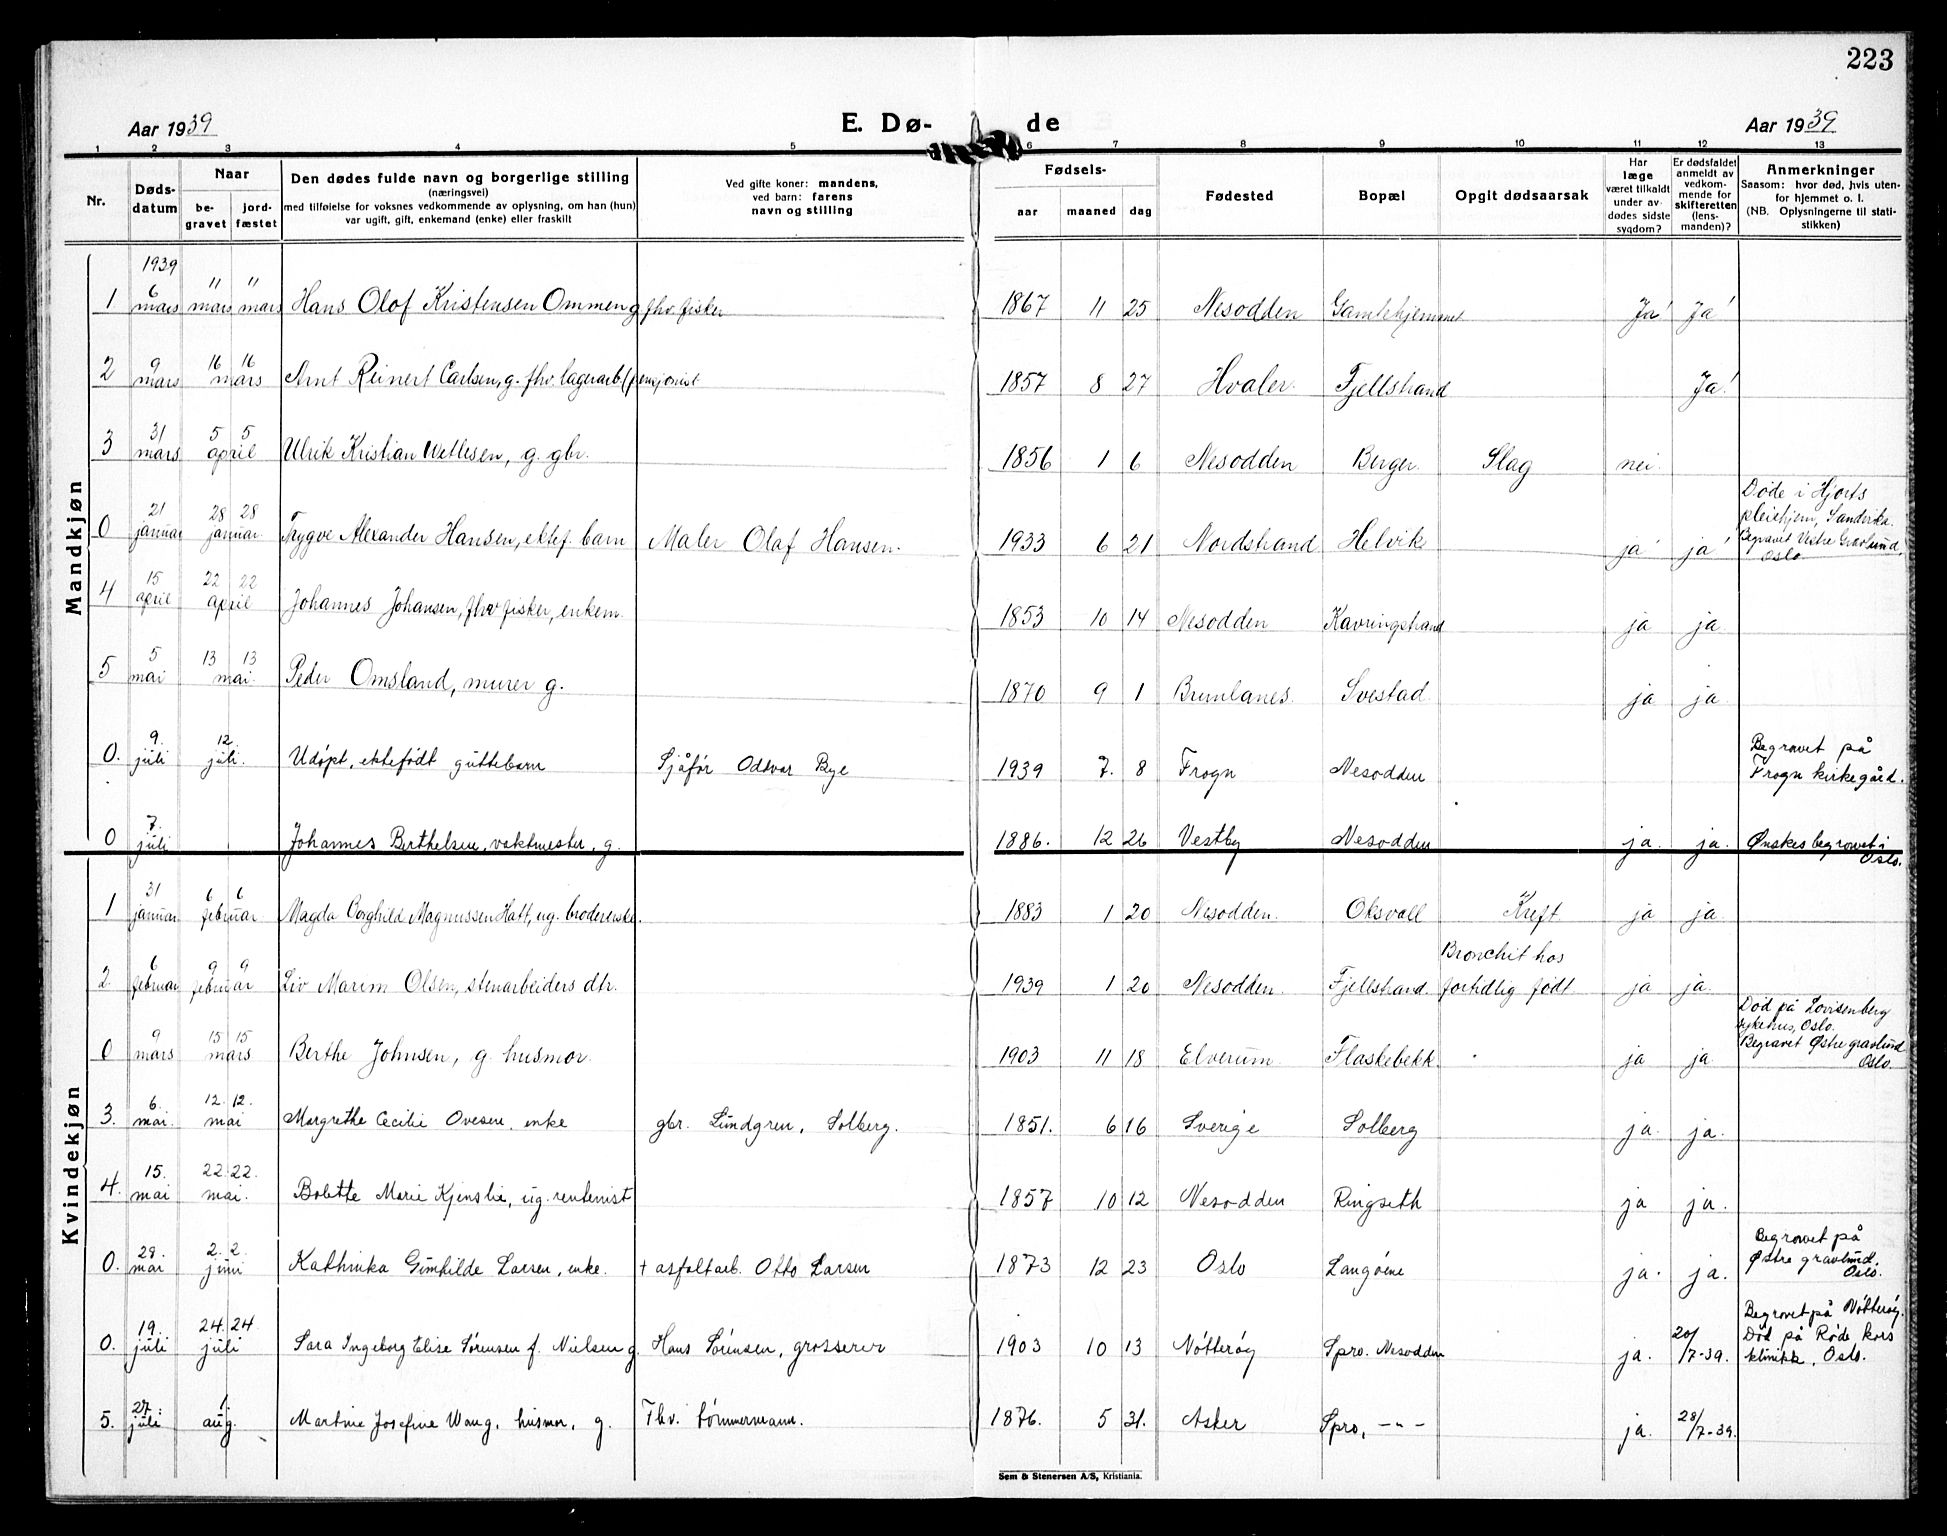 223
Aar 1939 E. Dø- de Aar 1939
1 2 3 4 5 6 7 8 9 10 11 12 13
Nr. Døds-datum Naar be-gravet jord-fæstet
Den dødes fulde navn og borgerlige stilling
(næringsvei)
med tilføielse for voksnes vedkommende av oplysning, om han (hun)
var ugift, gift, enkemand (enke) eller fraskilt
Ved gifte koner: mandens,
ved barn: farens
navn og stilling
Fødsels- aar maaned dag
Fødested Bopæl Opgit dødsaarsak
Har læge været tilkaldt under av-dødes sidste sygdom?
Er dødsfaldet anmeldt av vedkom-mende for skifteretten (lens-manden)?
Anmerkninger
Saasom: hvor død, hvis uten-
for hjemmet o. l.
(NB. Oplysningerne til stati-
stikken)
Mandkjøn
1 1939 6 mars 11 mars 11 mars Hans Olof Kristensen Ommen g. fhv. fisker 1867 11 25 Nesodden Gamlehjemmet Ja! Ja!
2 9 mars 16 16 mars Arnt Reinert Carlsen, g. fhv. lagerarb. (pensjonist 1857 8 27 Hvaler. Fjellstrand Ja!
3 31 mars 5 5 april Ulrik Kristian Wetlesen, g. gbr. 1856 1 6 Nesodden Berger Slag nei.
0 21 januar 28 28 januar Trygve Alexander Hansen, ektef. barn Maler Olaf Hansen. 1933 6 21 Nordstrand Helvik ja ja Døde i Hjorts
pleiehjem, Sandvika.
Begravet Vestre Gravlund,
Oslo
4 15 april 22 22 april Johannes Johansen, fhv fisker, enkem. 1853 10 14 Nesodden Kavringstrand ja ja.
5 5 mai 13 13 mai. Peder Omsland, murer g. 1870 9 1 Brunlanes. Svestad ja ja.
0. 9. juli 12. juli. Udøpt, ektefødt guttebarn Sjåfør Oddvar Bye 1939 7. 8 Frogn Nesodden Begravet på
Frogn kirkegård.
0 7. juli Johannes Berthelsen, vaktmester, g. 1886. 12 26 Vestby Nesodden ja. ja. Ønskes begravet i
Oslo.
Kvindekjøn
1 31 januar 6 6 februar Magda Borghild Magnussen Hatt, ug. brodererske. 1883 1 20 Nesodden. Oksvall Kreft ja ja.
2. 6 februar 9 9 februar Liv Marim Olsen, stenarbeiders dtr. 1939 1 20 Nesodden. Fjellstrand. Bronchit hos
fortidlig født ja ja.
0 9 mars 15 15 mars Berthe Johnsen, g. husmor. 1903 11 18 Elverum. Flaskebekk. ja ja Død på Lovisenberg
sykehus, Oslo.
Begravet Østre gravlund
Oslo.
3. 6. mai. 12. 12. mai Margrethe Cecilie Ovesen, enke gbr. Lundgren, Solberg. 1851. 6 16 Sverige Solberg ja. ja.
4. 15. mai 22. 22. mai. Bolette Marie Kjenslie, ug. rentenist 1857 10 12 Nesodden Ringseth ja ja.
0. 29. mai 2. 2. juni Kathinka Gunhilde Larsen, enke. + asfaltarb. Otto Larsen 1873 12 23 Oslo Langøene ja. ja. Begravet på
Østre gravlund.
Oslo.
0. 19. juli 24. 24. juli Sara Ingeborg Elise Sørensen f. Nielsen g. Hans Sørensen, grosserer 1903 10 13 Nøtterøy Spro. Nesodden ja. 20/7-39. Begravet på Nøtterøy.
Død på Røde kors
klinikk, Oslo.
5. 27. juli 1. aug. Martine Josefine Wang, husmor, g. Fhv. tømmermann. 1876. 5 31. Asker Spro, -"- ja. 28/7-39.
Sem & Stenersen A/S, Kristiania.